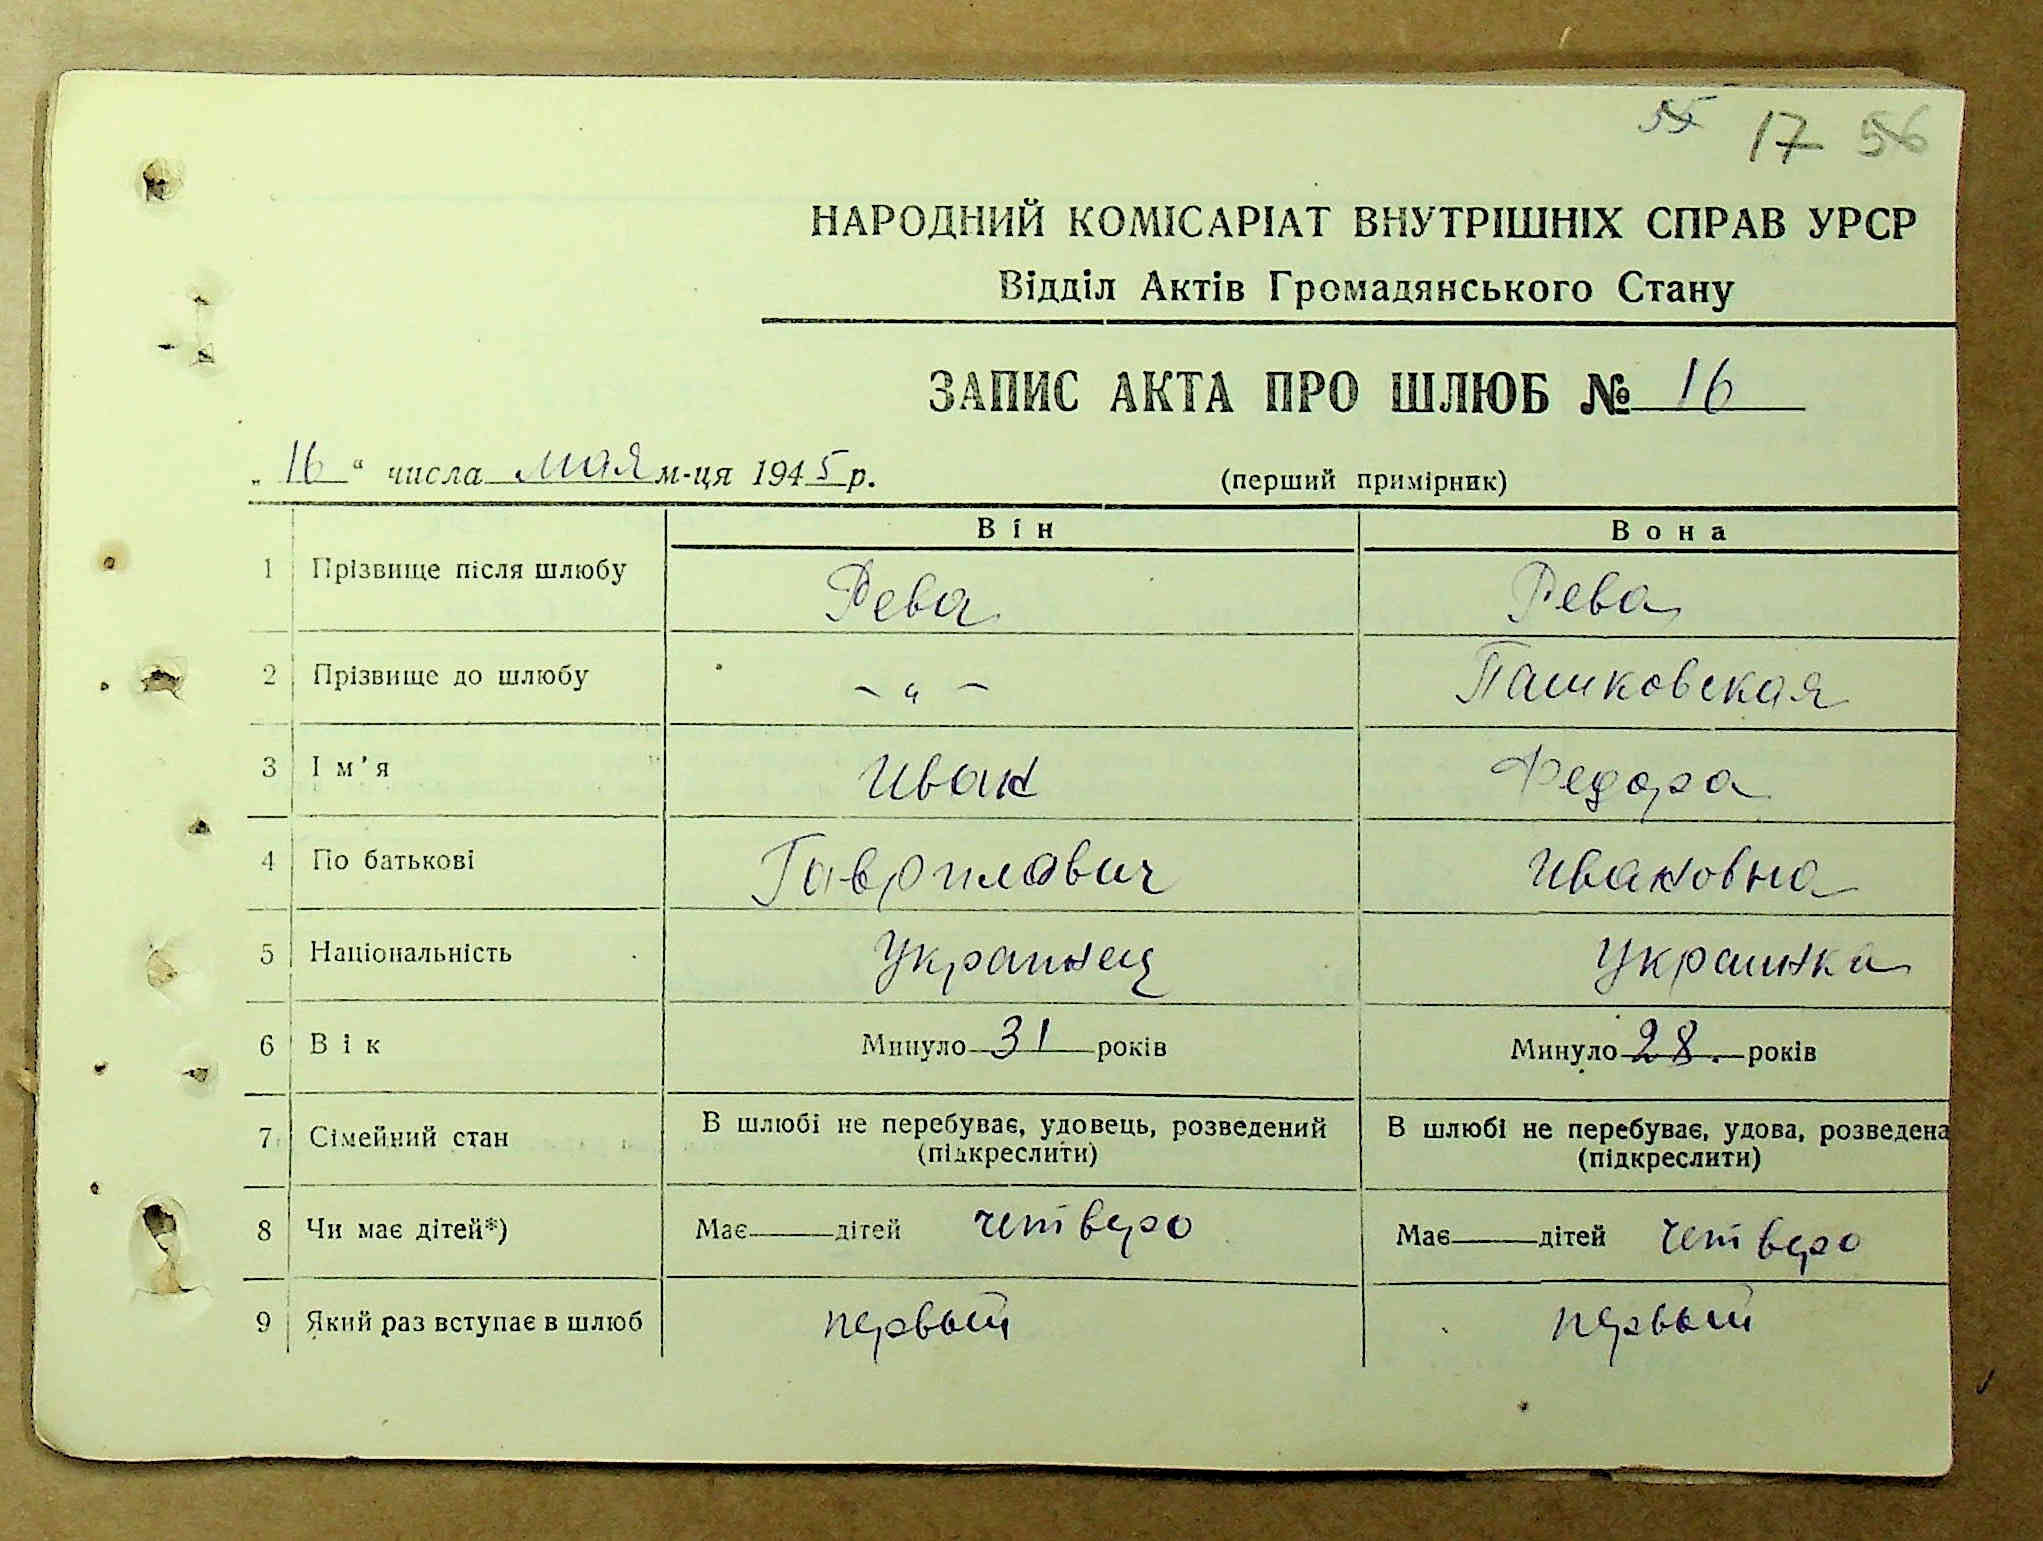 55 17 56
НАРОДНИЙ КОМІСАРІАТ ВНУТРІШНІХ СПРАВ УРСР
Відділ Актів Громадянського Стану
ЗАПИС АКТА ПРО ШЛЮБ № 16
„16“ числа мая м-ця 1945 р. (перший примірник)
Він Вона
1 Прізвище після шлюбу Рева Рева
2 Прізвище до шлюбу – „ – Пашковская
3 Ім’я Иван Федора
4 По батькові Гаврилович Ивановна
5 Національність Украинец Украинка
6 Вік Минуло 31 років Минуло 28. років
7 Сімейний стан В шлюбі не перебуває, удовець, розведений (підкреслити) В шлюбі не перебуває, удова, розведена (підкреслити)
8 Чи має дітей*) Має дітей четверо Має дітей четверо
9 Який раз вступає в шлюб первый первый